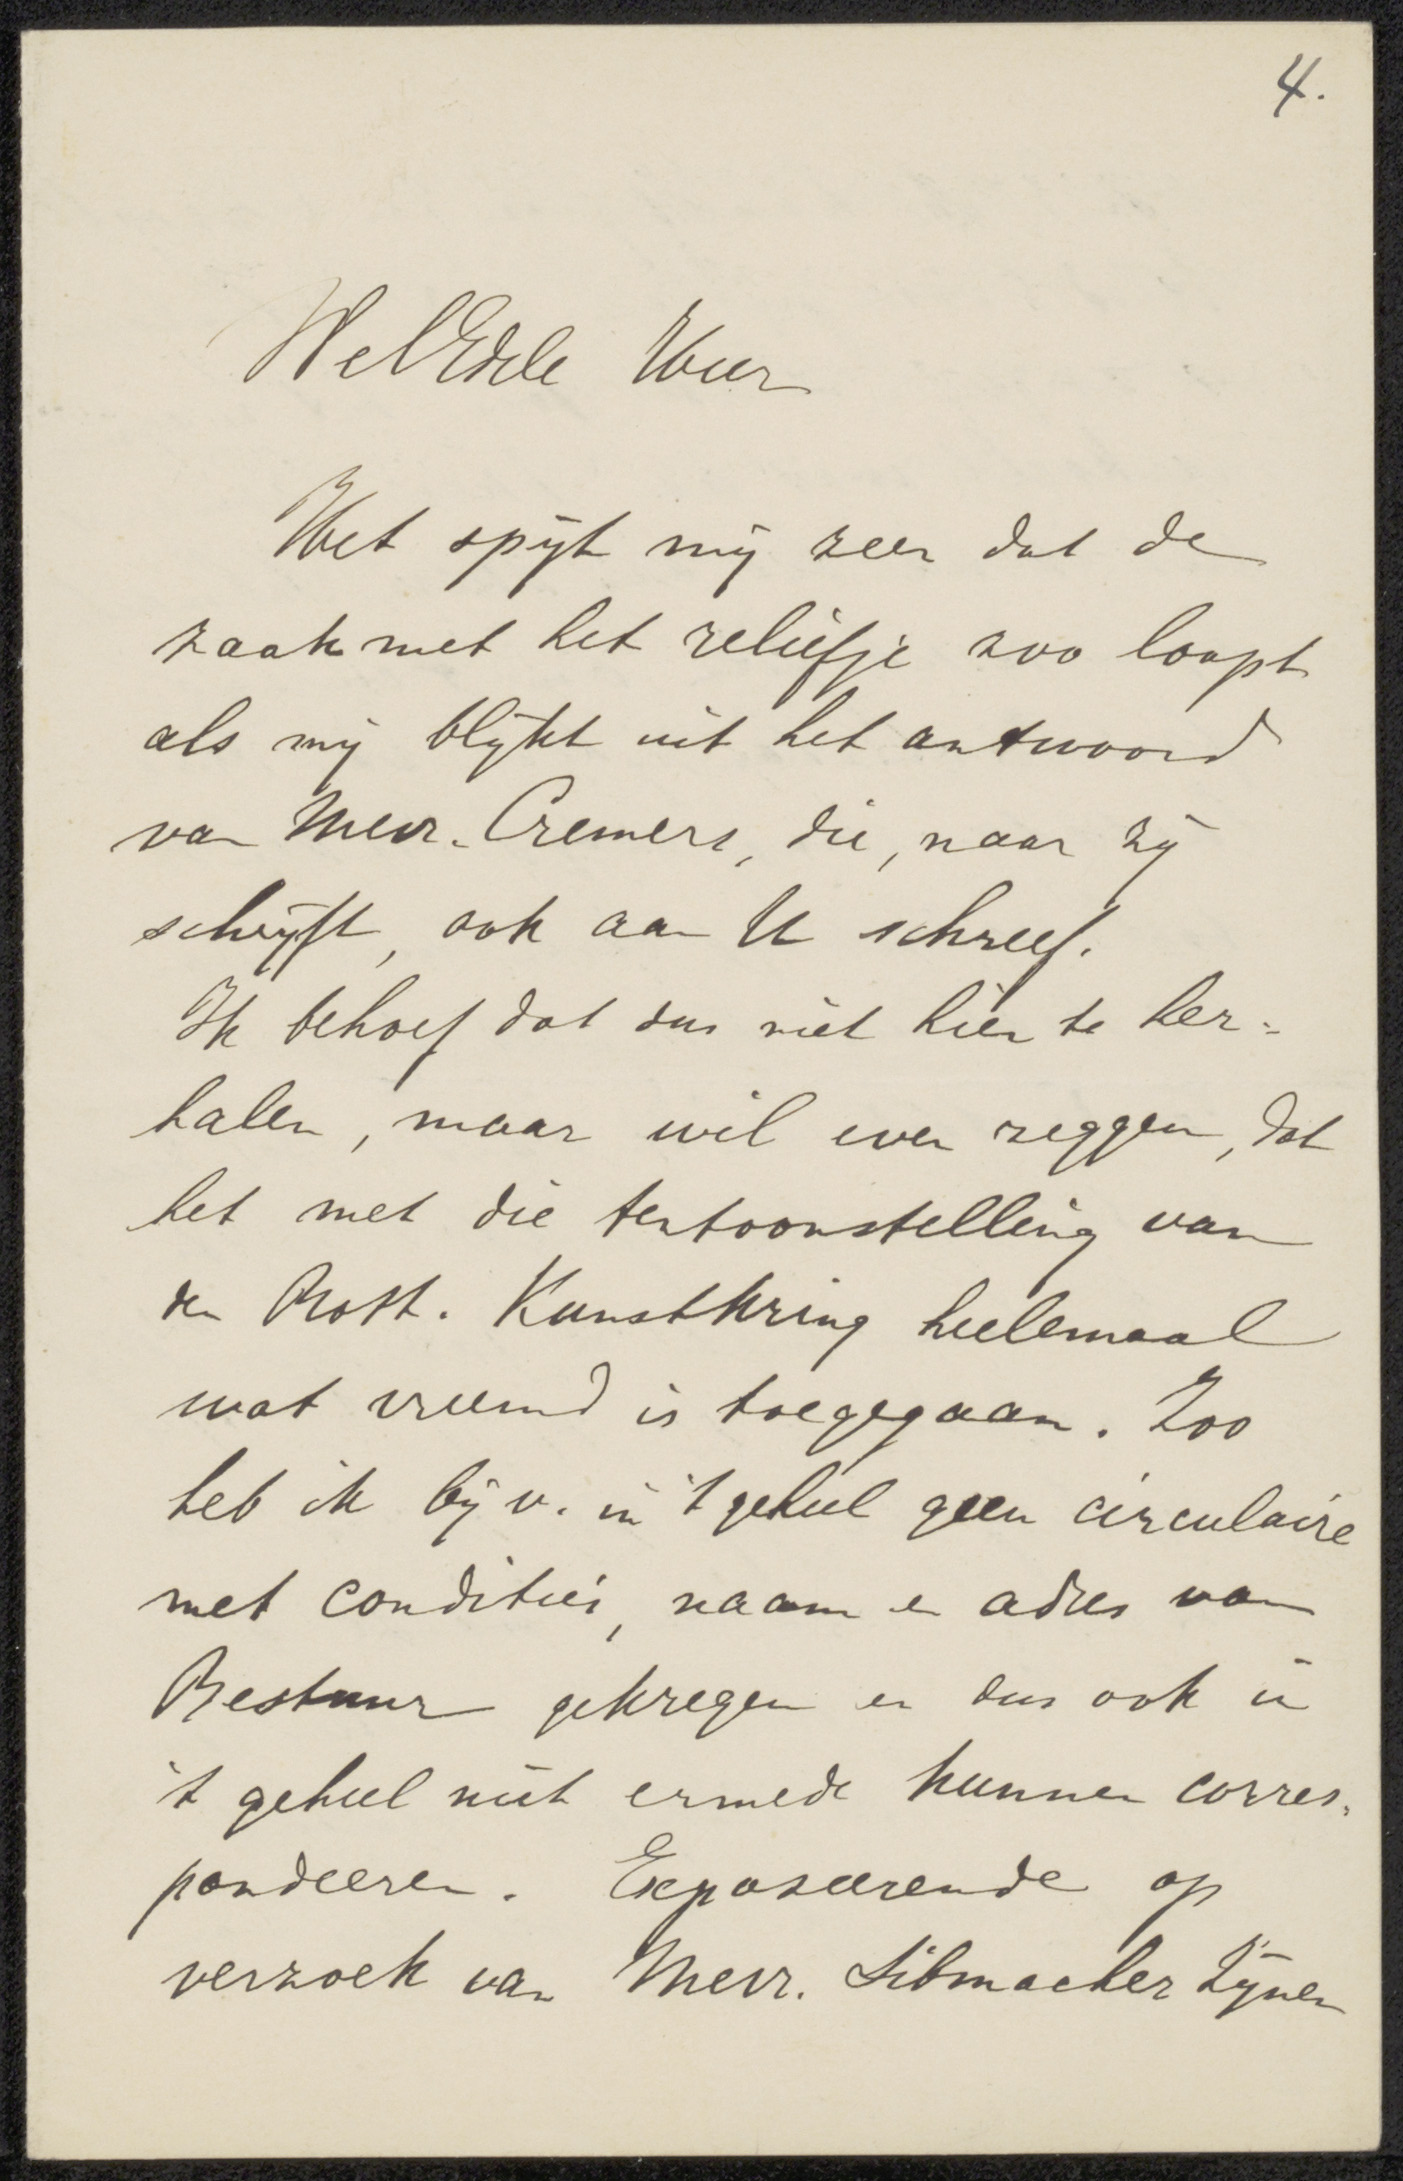 4.
WelEdele Heer
Het spijt mij zeer dat de
zaak met het reliefje zoo loopt
als mij blijkt uit het antwoord
van Mevr. Cremers, die, naar zij
schrijft, ook aan U schreef.
Ik behoef dat dus niet hier te her=
halen, maar wil even zeggen, dat
het met die tentoonstelling van
den Rott. Kunstkring heelemaal
wat vreemd is toegegaan. Zoo
heb ik bijv. in 't geheel geen circulaire
met condities, naam en adres van
Bestuur gekregen en dus ook in
't geheel niet ermede kunnen corres-
pondeeren. Exposeerende op
verzoek van Mevr. Sibmacher Zijnen